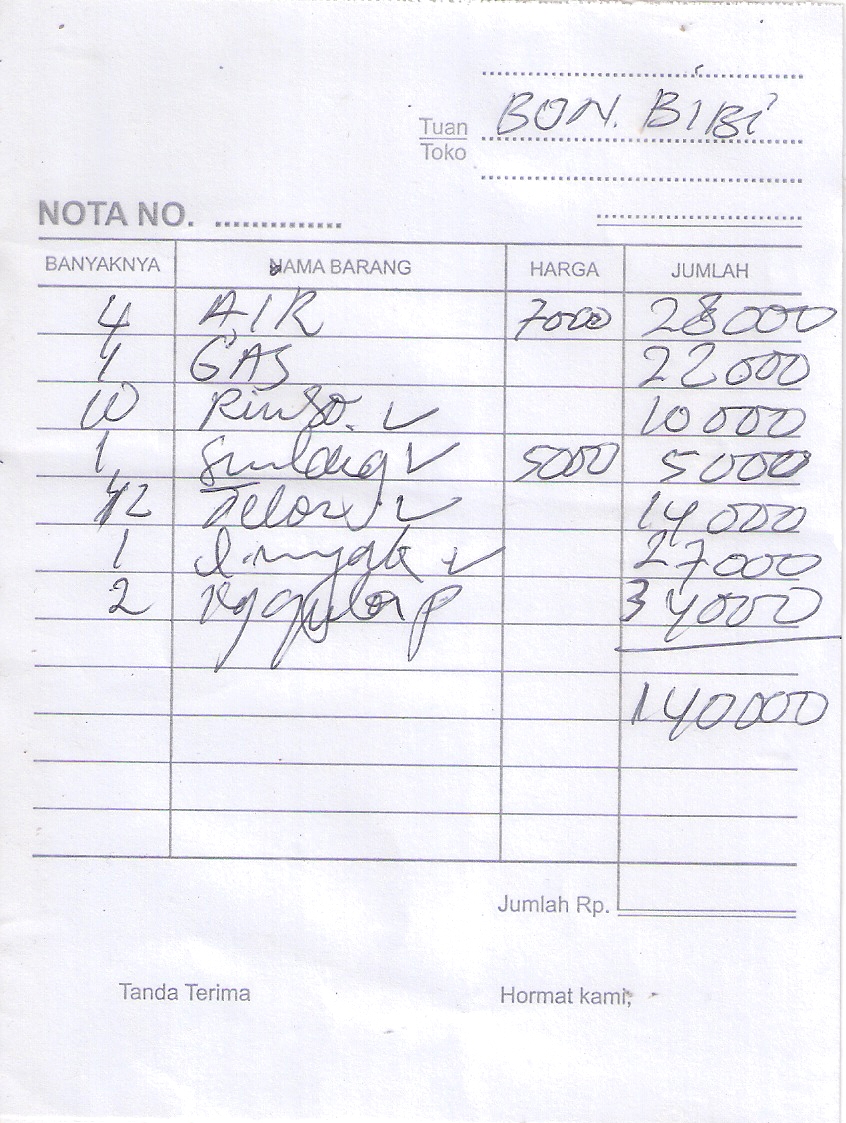 BON. BIBI
Tuan
Toko
NOTA NO. ..............
BANYAKNYA NAMA BARANG HARGA JUMLAH
4 AIR 7000 28000
1 GAS 22000
10 Rinso. ✓ 10000
1 Sunlaig ✓ 5000 5000
1/2 Telor ✓ 14000
1 ✓ 27000
2 34000
140000
Jumlah Rp.
Tanda Terima Hormat kami,